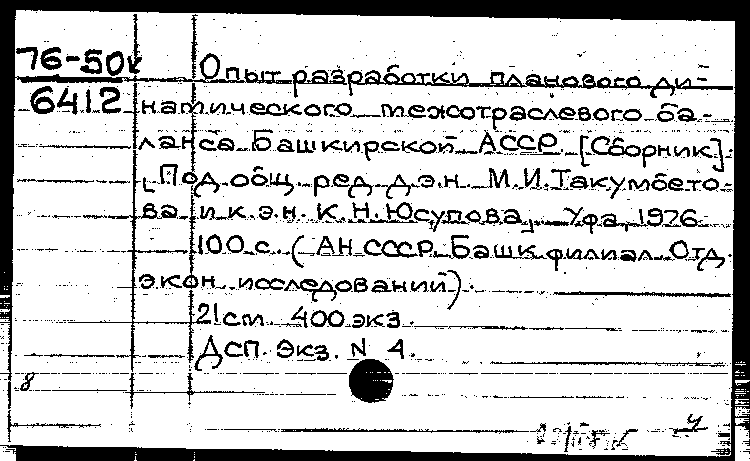 76-50к
6412
Опыт разработки планового ди-
намического межотраслевого ба-
ланса Башкирской АССР. [Сборник].
[Под общ. ред. д.э.н. М.И.Такумбето-
ва и к.э.н. К.Н.Юсупова]. Уфа, 1976.
100 с. (АН СССР. Башк. филиал. Отд.
экон. исследований).
21cm. 400 экз.
ДСП. Экз. N 4.
8